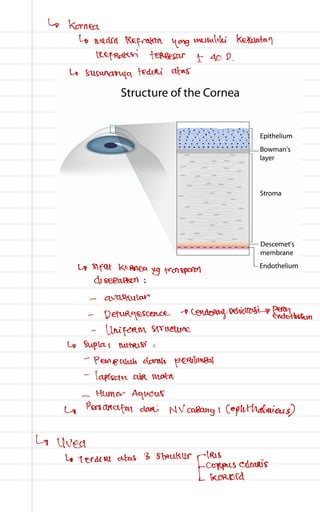 ↳ Kornea
↳ media Refraksi yang memiliki kekuatan
Refraksi terbesar ± 40 D.
↳ Susunannya tediri atas
Structure of the Cornea
Epithelium
Bowman's
layer
Stroma
Descemet's
membrane
Endothelium
↳ Sifat Kornea yg transparan
disebabkan :
- avaskular
- Deturgescence → Cenderung Dehidrasi → Peran
endothelium
- Uniform structure
↳ Suplai nutrisi :
- Pembuluh darah perilimbal
- lapisan air mata
- Humor Aqueus
↳ Persarafan dari NV cabang 1 (ophthalmicus)
↳ Uvea
↳ Terdiri atas 3 struktur
- Iris
- Corpus ciliaris
- Koroid